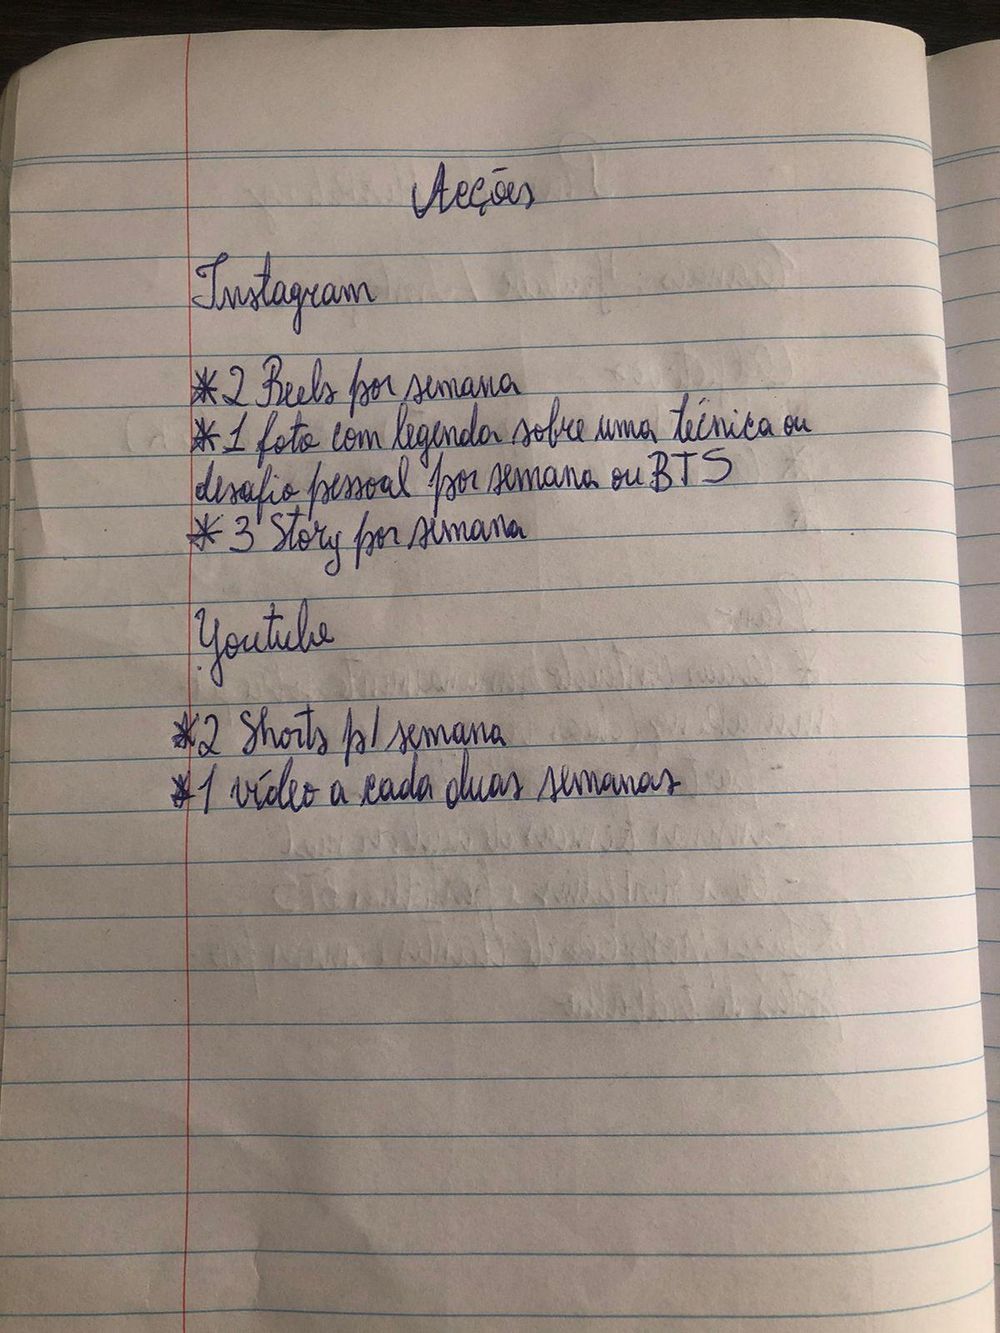 Acções
Instagram
* 2 Reels por semana
* 1 foto com legenda sobre uma técnica ou
desafio pessoal por semana ou BTS
* 3 Story por semana
Youtube
* 2 Shorts p/ semana
* 1 vídeo a cada duas semanas